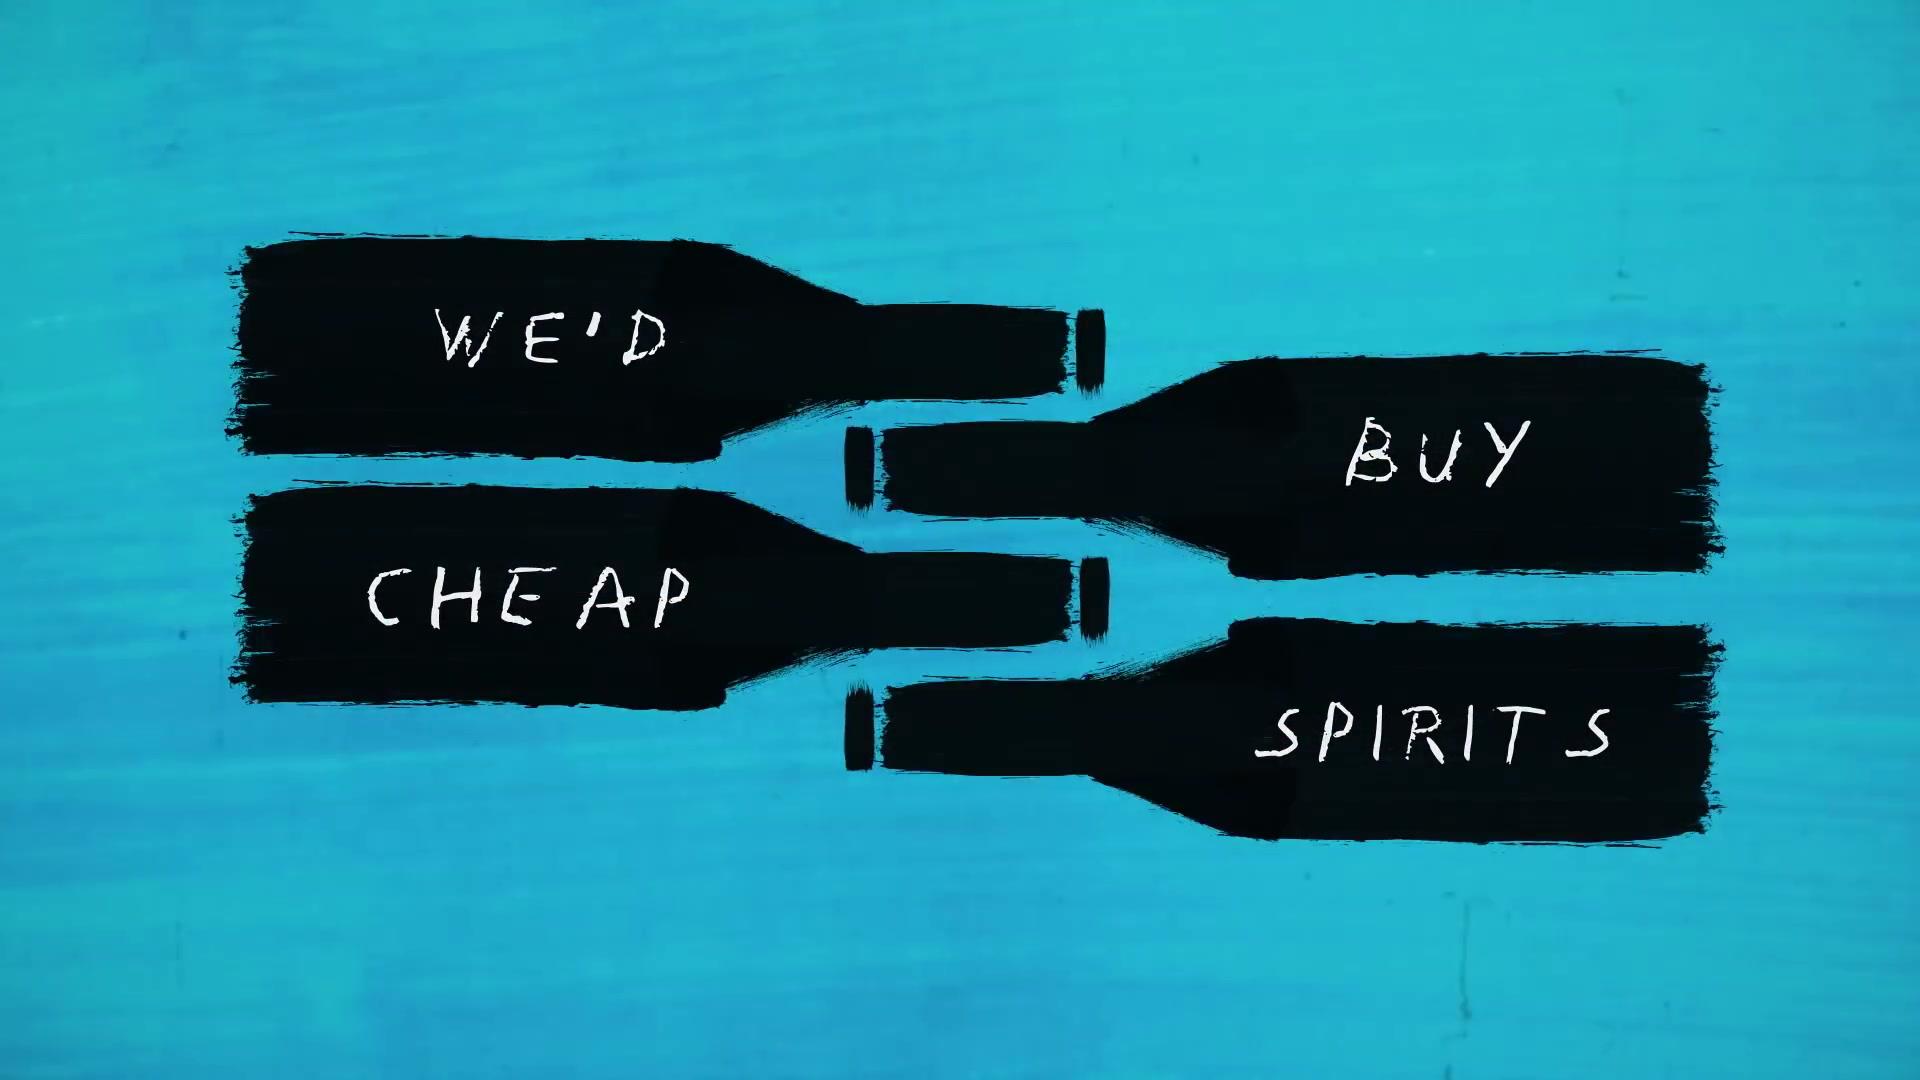 WE'D
BUY
CHEAP
SPIRITS